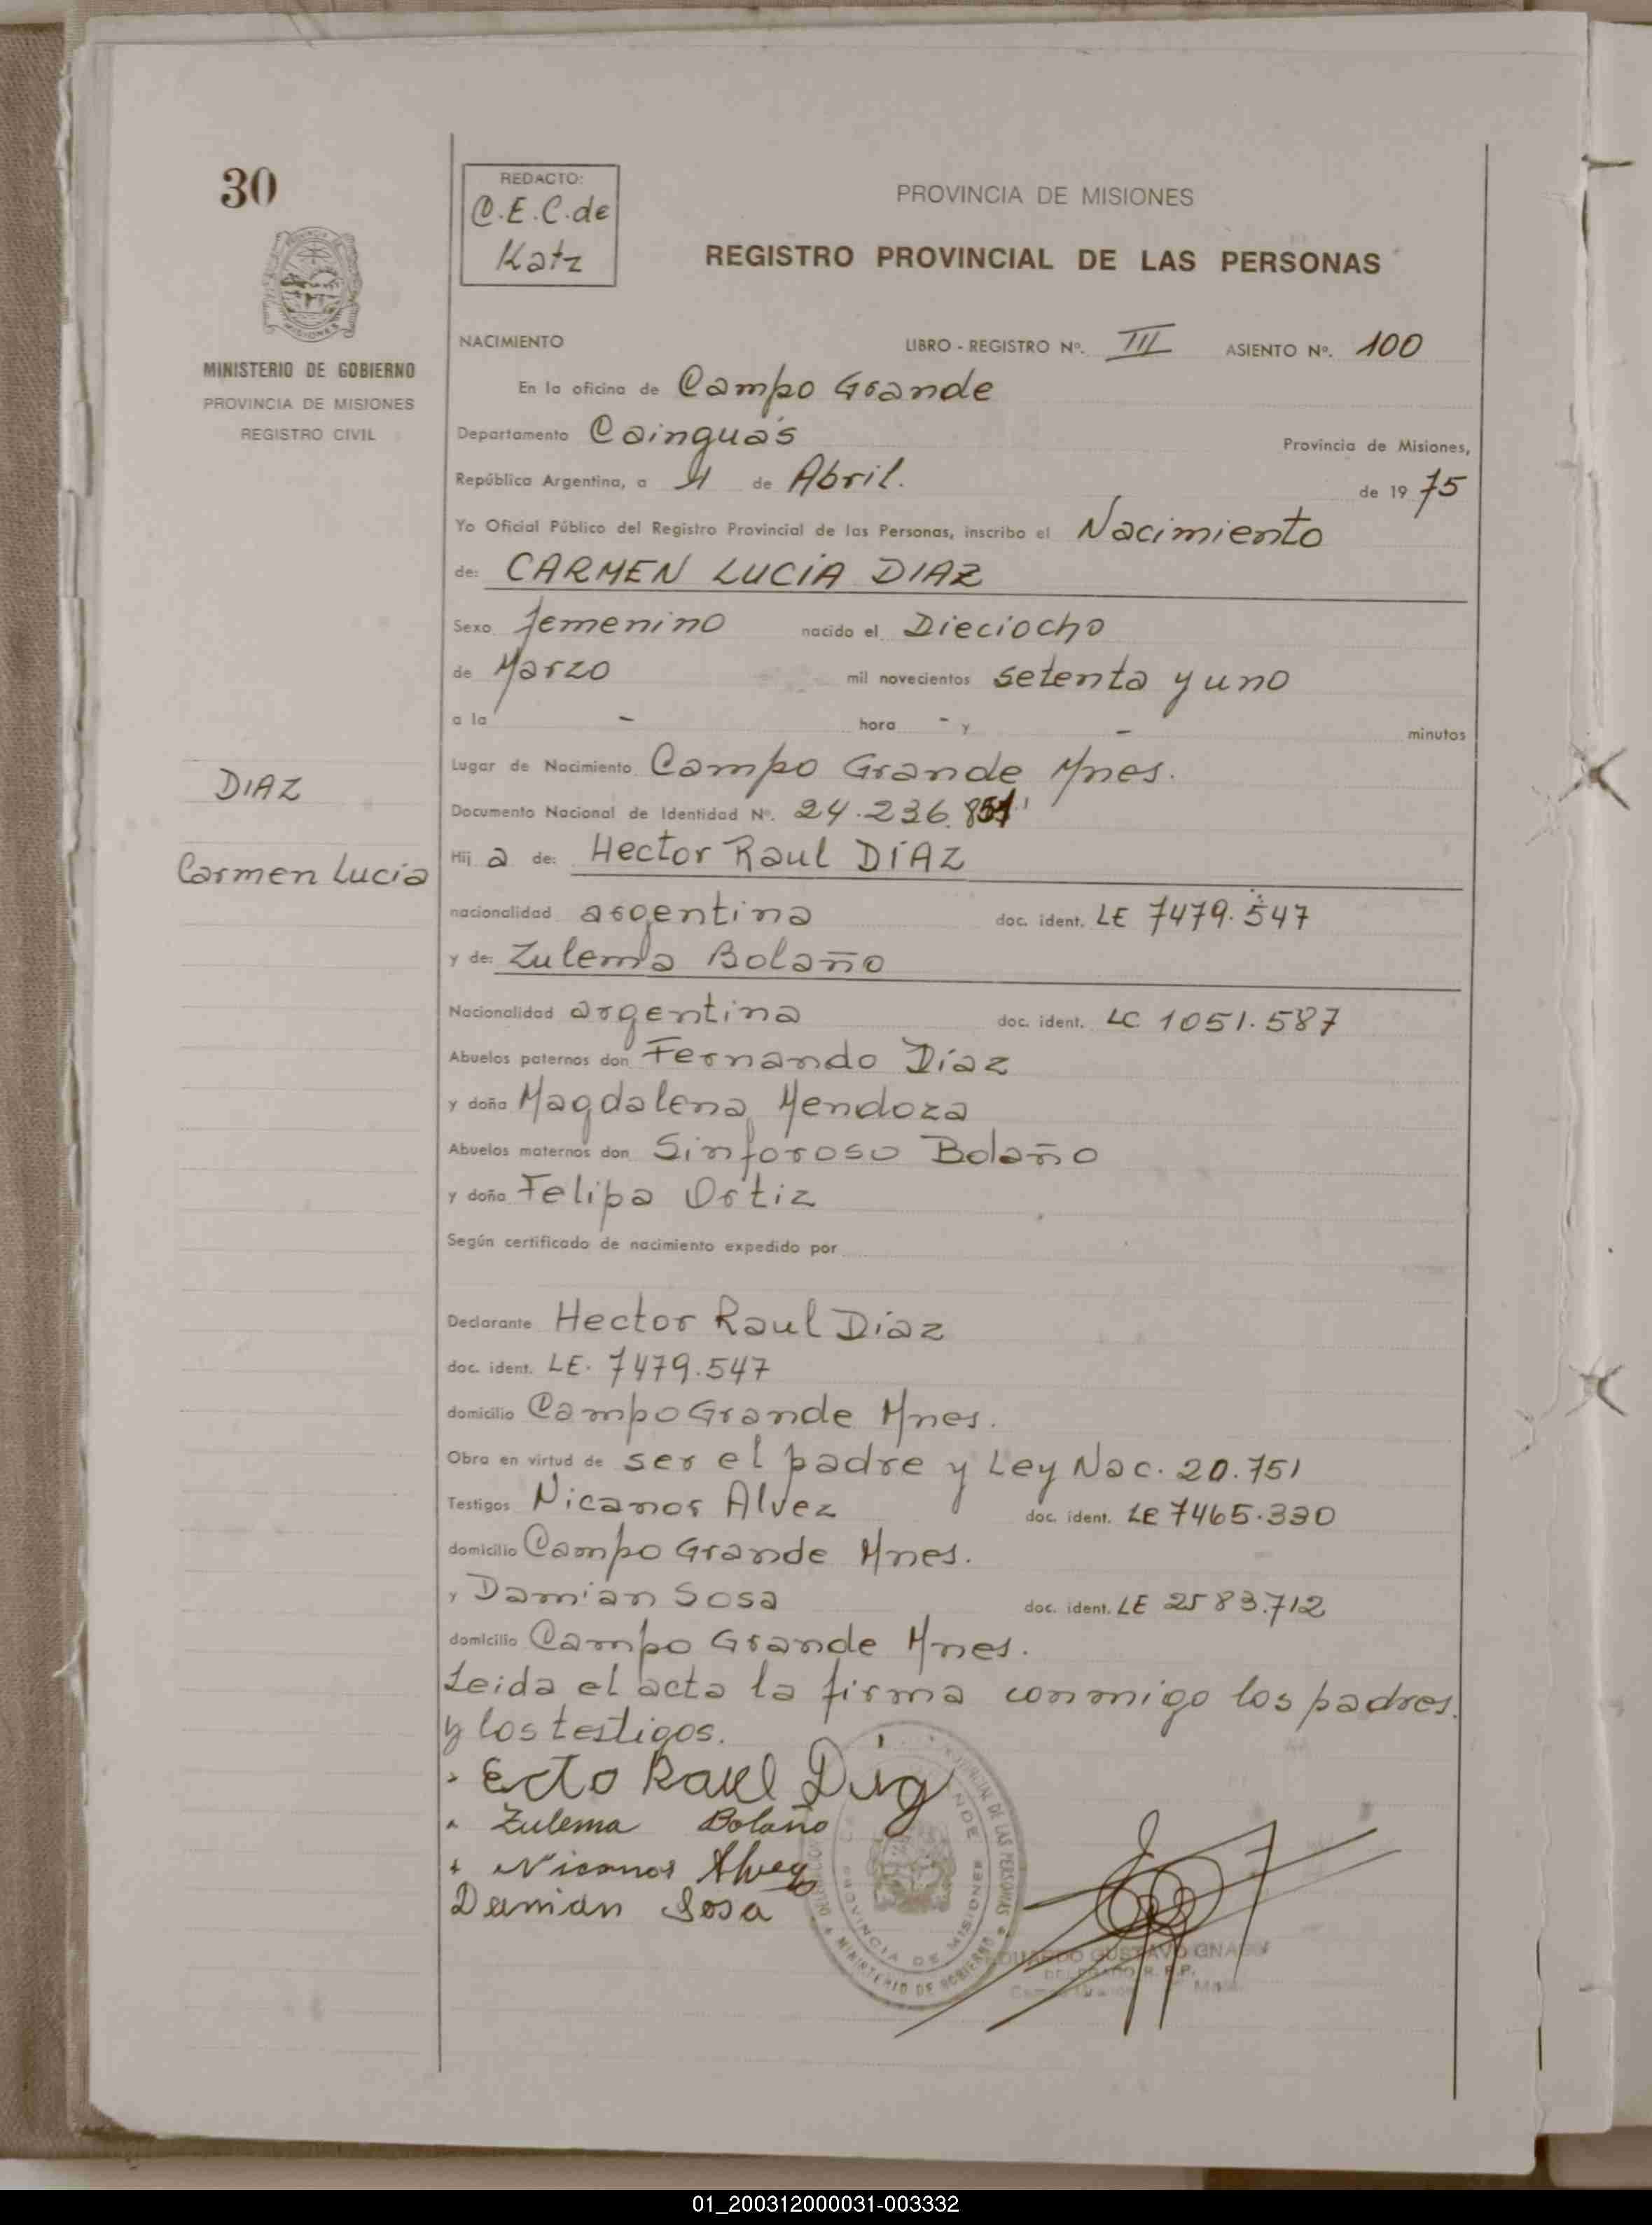 30
REDACTO:
C.E.C. de
Katz
PROVINCIA DE MISIONES
REGISTRO PROVINCIAL DE LAS PERSONAS
MISIONES
MINISTERIO DE GOBIERNO
PROVINCIA DE MISIONES
REGISTRO CIVIL
NACIMIENTO LIBRO - REGISTRO Nº. III ASIENTO Nº. 100
En la oficina de Campo Grande
Departamento Cainguás Provincia de Misiones,
República Argentina, a de Abril. de 19 75
Yo Oficial Público del Registro Provincial de las Personas, inscribo el Nacimiento
de: CARMEN LUCIA DIAZ
Sexo femenino nacido el Dieciocho
de Marzo mil novecientos setenta y uno
a la - hora - y - minutos
Lugar de Nacimiento Campo Grande Mnes.
Documento Nacional de Identidad Nº. 24.236.
DIAZ
Carmen Lucia
Hij a de: Hector Raul DÍAZ
nacionalidad argentina doc. ident. LE 7479.547
y de: Zulema Bolaño
Nacionalidad argentina doc. ident. LC 1051.587
Abuelos paternos don Fernando Díaz
y doña Magdalena Mendoza
Abuelos maternos don Sinforoso Bolaño
y doña Felipa Ortiz
Según certificado de nacimiento expedido por
Declarante Hector Raul Diaz
doc. ident. LE. 7479.547
domicilio Campo Grande Mnes.
Obra en virtud de ser el padre y Ley Nac. 20.751
Testigos Nicanor Alvez doc. ident. LE 7465.330
domicilio Campo Grande Mnes.
y Damian Sosa doc. ident. LE 2583.712
domicilio Campo Grande Mnes.
Leida el acta la firma conmigo los padres
y los testigos.
Ecto Raul
Zulema Bolaño
Nicanor Alvez
Damian Sosa
PROVINCIA DE MISIONES
MINISTERIO DE GOBIERNO
DE LAS PERSONAS
EDUARDO GUSTAVO
DELEGADO R. P. P.
01_200312000031-003332